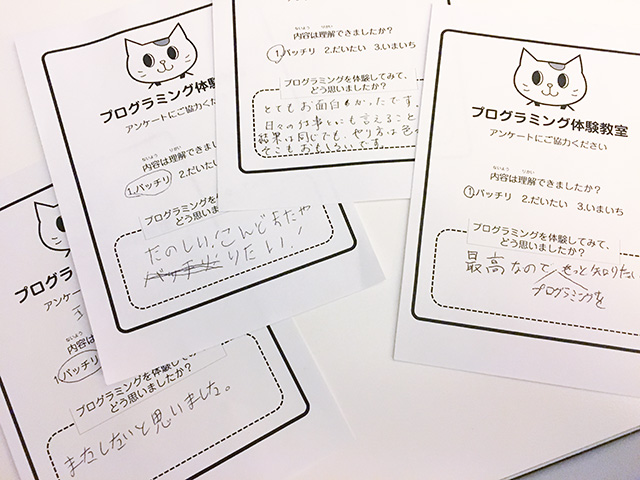 プログラミング体験
アンケートにご協力くだ
ないよう りかい
内容は理解できましたか?
1.バッチリ 2.だいたい
プログラミングを体験してみ
どう思いましたか?
たのしい!こんどまたや
りたい!
ないよう りかい
内容は理解できましたか?
1.バッチリ 2.だいたい 3.いまいち
プログラミングを体験してみて、
どう思いましたか?
とてもお面白かったです。
日々の仕事にも言えること
結果は同じでも、やり方は色
そこもおもしろいです。
プログラミング体験教室
アンケートにご協力ください
ないよう りかい
内容は理解できましたか?
1.バッチリ 2.だいたい 3.いまいち
プログラミングを体験してみて、
どう思いましたか?
最高なので もっと知りたい
プログラミングを
プログラミン
アンケー
内容は理
1.バッチリ
プログラミングを体験してみ
どう思いましたか?
またしたいと思いました。